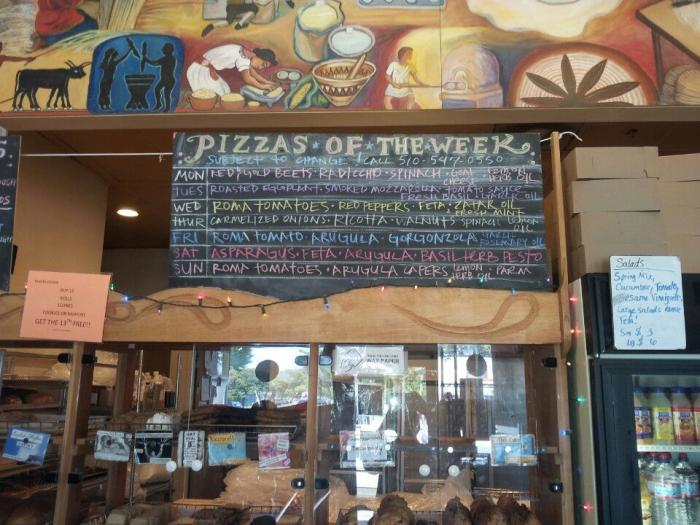 PIZZAS OF THE WEEK
SUBJECT TO CHANGE! CALL 510-547-0550
MON RED+GOLD BEETS · RADICCHIO · SPINACH · GOAT CHEESE · LEMON HERB OIL
TUES ROASTED EGGPLANT · SMOKED MOZZARELLA TOMATO SAUCE FRESH BASIL · GARLIC OIL
WED ROMA TOMATOES · RED PEPPERS · FETA · ZATAR OIL · FRESH MINT
THUR CARMELIZED ONIONS · RICOTTA · WALNUTS SPINACH LEMON OIL
FRI ROMA TOMATO · ARUGULA · GORGONZOLA · GARLIC ROSEMARY OIL
SAT ASPARAGUS · FETA · ARUGULA · BASIL HERB PESTO
SUN ROMA TOMATOES · ARUGULA CAPERS LEMON HERB OIL · PARM
BUY 12
ROLLS
SCONES
COOKIES OR MUFFINS
GET THE 13TH FREE!!
Salads
Spring Mix,
Cucumber, Tomato,
Sesame Vinaigrette
Large salads have
Feta!
Sm $ 3
Lg $ 6
WAX PAPER